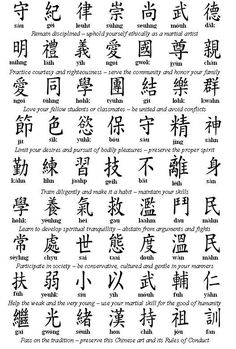 守 紀 律 崇 尚 武 德
sáu géi leuht sùhng seuhng móuh dāk
Remain disciplined – uphold yourself ethically as a martial artist
明 禮 義 愛 國 尊 親
mìhng láih yih ngoi gwok jyùn
Practice courtesy and righteousness – serve the community and honor your family
愛 同 學 團 結 樂 群
ngoi tùhng hohk tyùhn git lohk kwàhn
Love your fellow students or classmates – be united and avoid conflicts
節 色 慾 保 守 精 神
jit sīk yuhk bóu sáu sàhn
Limit your desires and pursuit of bodily pleasures – preserve the proper spirit
勤 練 習 技 不 離 身
lihn geih bāt lèih sàn
Train diligently and make it a habit – maintain your skills
學 養 氣 救 濫 鬥 民
hohk hei gau
Learn to develop spiritual tranquility – abstain from arguments and fights
常 處 世 態 度 溫 文
sèuhng chyu sai taai douh wàn màhn
Participate in society – be conservative, cultured and gentle in your manners
扶 弱 小 以 武 輔 仁
fùh yeuhk síu yíh móuh fuh yàhn
Help the weak and the very young – use your martial skill for the good of humanity
繼 光 緒 漢 持 祖 訓
gai séuih hon chìh jóu fan
Pass on the tradition – preserve this Chinese art and its Rules of Conduct